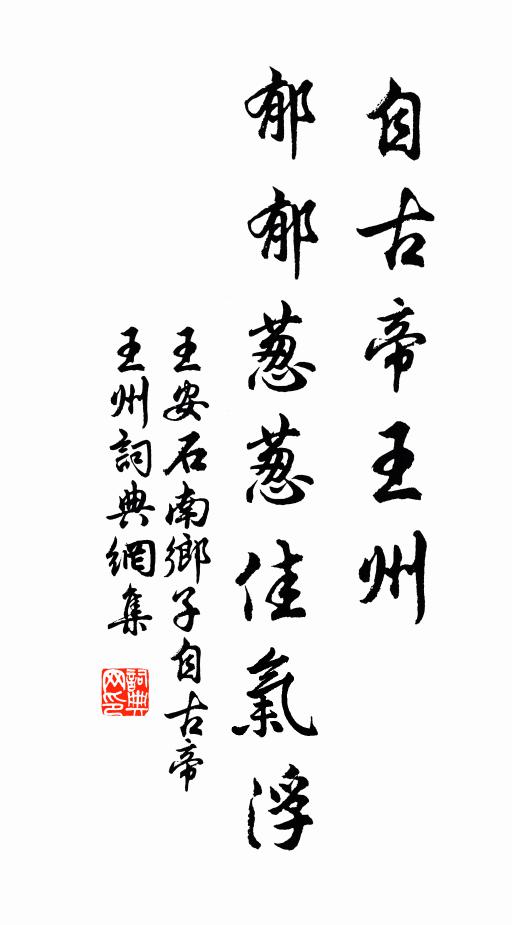 自古帝王州
郁郁葱葱佳氣浮
王安石南鄉子自古帝
王州詞典網集
詞典
网印